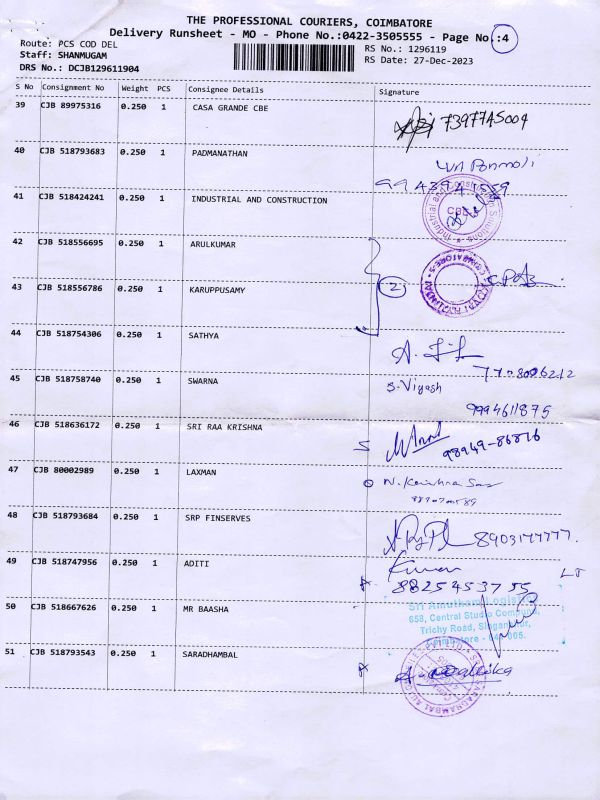 THE PROFESSIONAL COURIERS, COIMBATORE
Delivery Runsheet - MO - Phone No.:0422-3505555 - Page No.:4
Route: PCS COD DEL
RS No.: 1296119
Staff: SHANMUGAM
RS Date: 27-Dec-2023
DRS No.: DCJB129611904
S No Consignment No Weight PCS Consignee Details Signature
39 CJB 89975316 0.250 1 CASA GRANDE CBE
7397745009
40 CJB 518793683 0.250 1 PADMANATHAN
41 CJB 518424241 0.250 1 INDUSTRIAL AND CONSTRUCTION
42 CJB 518556695 0.250 1 ARULKUMAR
43 CJB 518556786 0.250 1 KARUPPUSAMY
2
44 CJB 518754306 0.250 1 SATHYA
45 CJB 518758740 0.250 1 SWARNA
S. Viyash
9994611875
46 CJB 518636172 0.250 1 SRI RAA KRISHNA
98949-86816
47 CJB 80002989 0.250 1 LAXMAN
48 CJB 518793684 0.250 1 SRP FINSERVES
8903177777.
49 CJB 518747956 0.250 1 ADITI
Kumar
8825453755
50 CJB 518667626 0.250 1 MR BAASHA
658, Central Studio
Trichy Road, Singanallur,
Coimbatore - 641 005.
51 CJB 518793543 0.250 1 SARADHAMBAL